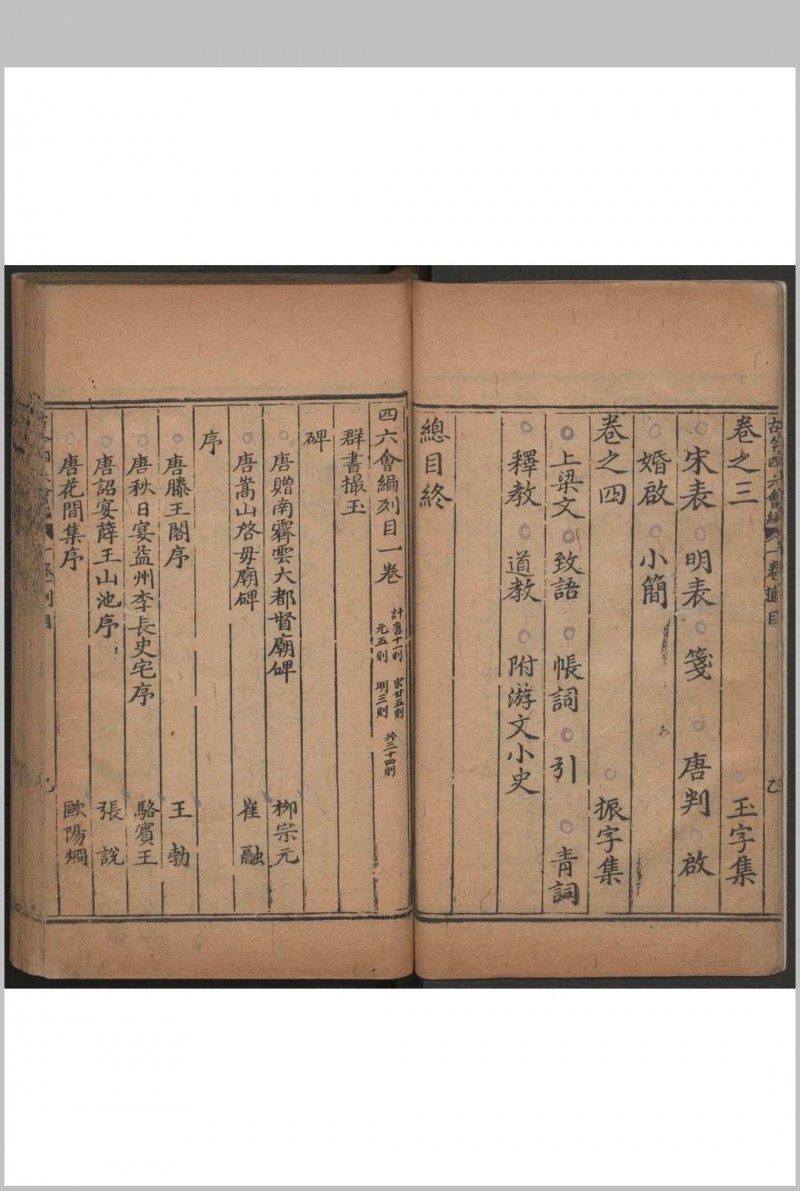 卷之三 玉字集
宋表 明表 箋 唐判 啟
婚啟 小簡
卷之四 振字集
上梁文 致語 帳詞 引 青詞
釋教 道教 附游文小史
總目終
四六會編列目一卷 計唐十一則 宋廿五則 元五則 明三則 共三十四則
群書撮玉
碑
唐贈南霽雲大都督廟碑 柳宗元
唐嵩山啓母廟碑 崔融
序
唐滕王閣序 王勃
唐秋日宴益州李長史宅序 駱賓王
唐詔宴薛王山池序 張說
唐花間集序 歐陽烱